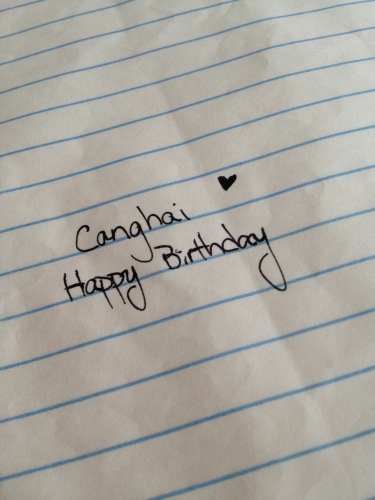 Canghai ♥
Happy Birthday